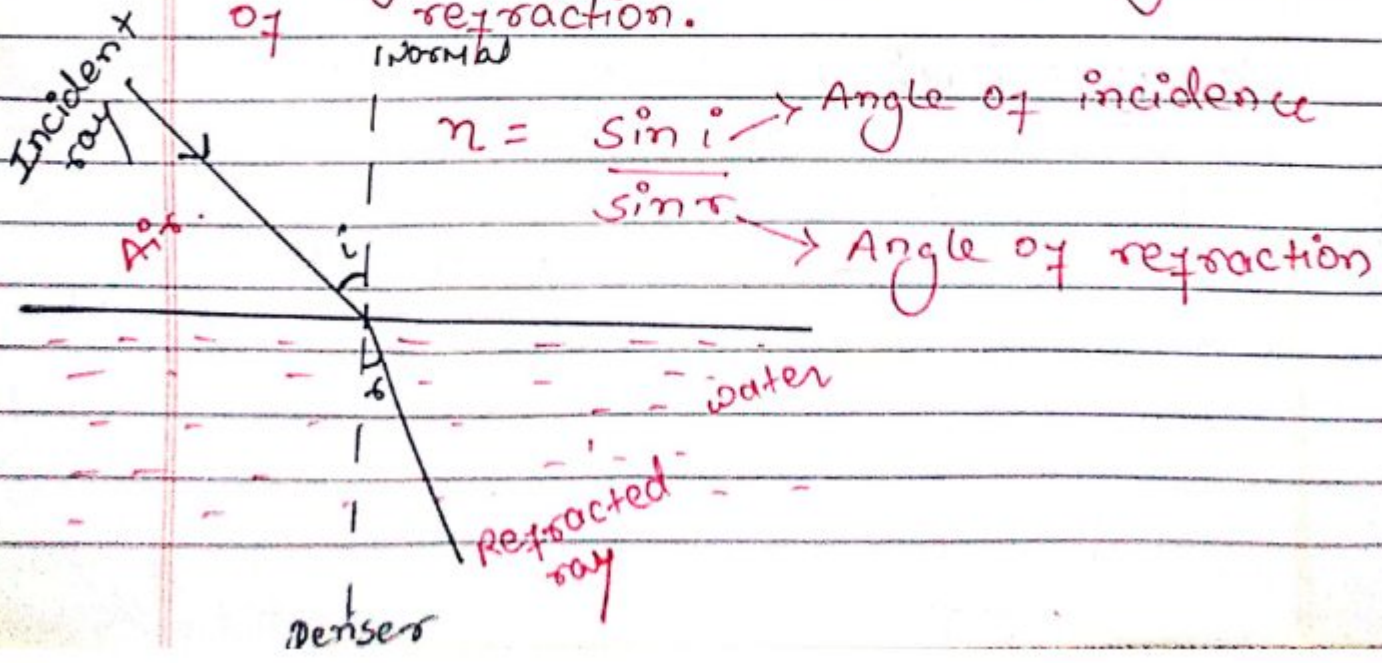 of refraction.
Normal
Incident
ray
n = sin i → Angle of incidence
sin r → Angle of refraction
Air
i
r
water
Refracted
ray
Denser